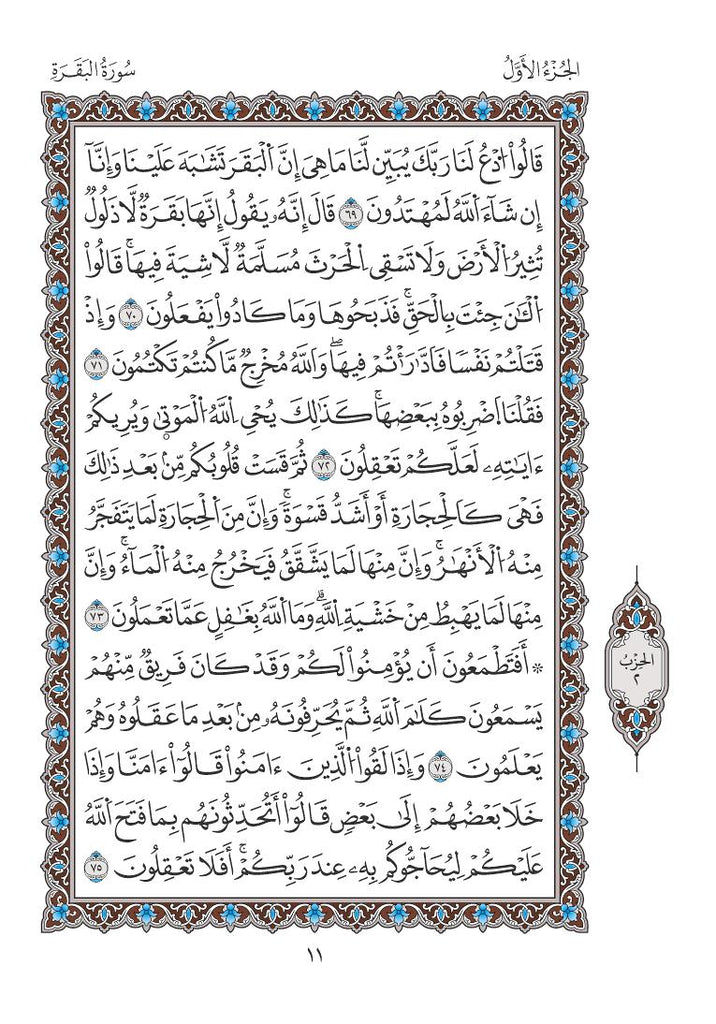 الجُزْءُ الأَوَّلُ
سُورَةُ البَقَرَةِ
قَالُواْ اُدْعُ لَنَا رَبَّكَ يُبَيِّن لَّنَا مَا هِيَ إِنَّ اَلْبَقَرَ تَشَٰبَهَ عَلَيْنَا وَإِنَّآ
إِن شَآءَ اَللَّهُ لَمُهْتَدُونَ ٦٩ قَالَ إِنَّهُۥ يَقُولُ إِنَّهَا بَقَرَةٌ لَّا ذَلُولٌ
تُثِيرُ اُلْأَرْضَ وَلَا تَسْقِي اِلْحَرْثَ مُسَلَّمَةٌ لَّا شِيَةَ فِيهَاۚ قَالُواْ
اُلْـَٰٔنَ جِئْتَ بِالْحَقِّۚ فَذَبَحُوهَا وَمَا كَادُواْ يَفْعَلُونَ ٧٠ وَإِذْ
قَتَلْتُمْ نَفْسًا فَادَّٰرَٰٔتُمْ فِيهَاۖ وَاللَّهُ مُخْرِجٌ مَّا كُنتُمْ تَكْتُمُونَ ٧١
فَقُلْنَا اَضْرِبُوهُ بِبَعْضِهَاۚ كَذَٰلِكَ يُحْيِ اِللَّهُ اُلْمَوْتىٰ وَيُرِيكُمْ
ءَايَٰتِهِۦ لَعَلَّكُمْ تَعْقِلُونَ ٧٢ ثُمَّ قَسَتْ قُلُوبُكُم مِّنۢ بَعْدِ ذَٰلِكَ
فَهْيَ كَالْحِجَارَةِ أَوْ أَشَدُّ قَسْوَةًۚ وَإِنَّ مِنَ اَلْحِجَارَةِ لَمَا يَتَفَجَّرُ
مِنْهُ اُلْأَنْهَٰرُۚ وَإِنَّ مِنْهَا لَمَا يَشَّقَّقُ فَيَخْرُجُ مِنْهُ اُلْمَآءُۚ وَإِنَّ
مِنْهَا لَمَا يَهْبِطُ مِنْ خَشْيَةِ اِللَّهِۗ وَمَا اَللَّهُ بِغَٰفِلٍ عَمَّا تَعْمَلُونَ ٧٣
۞ أَفَتَطْمَعُونَ أَن يُؤْمِنُواْ لَكُمْ وَقَدْ كَانَ فَرِيقٌ مِّنْهُمْ
يَسْمَعُونَ كَلَٰمَ اَللَّهِ ثُمَّ يُحَرِّفُونَهُۥ مِنۢ بَعْدِ مَا عَقَلُوهُ وَهُمْ
يَعْلَمُونَ ٧٤ وَإِذَا لَقُواْ اُلَّذِينَ ءَامَنُواْ قَالُوٓاْ ءَامَنَّا وَإِذَا
خَلَا بَعْضُهُمْ إِلَىٰ بَعْضٍ قَالُوٓاْ أَتُحَدِّثُونَهُم بِمَا فَتَحَ اَللَّهُ
عَلَيْكُمْ لِيُحَآجُّوكُم بِهِۦ عِندَ رَبِّكُمْۚ أَفَلَا تَعْقِلُونَ ٧٥
الحِزْب
٢
١١